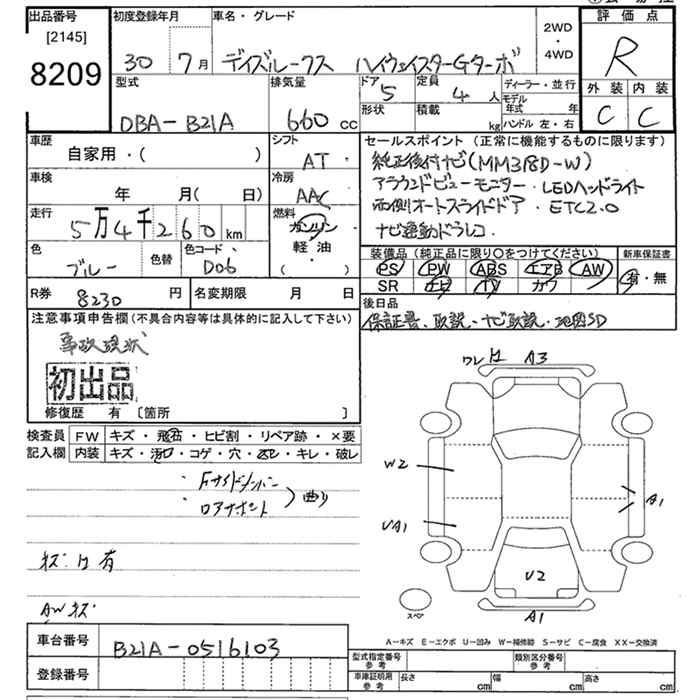 出品番号 初度登録年月 車名・グレード 評価点
[2145]
8209
30 7月 デイズルークス ハイウェイスターGターボ 2WD・4WD R
型式 排気量 ドア 定員 ディーラー・並行 外装 内装
DBA-B21A 660cc 5 4人 モデル年式 年 C C
形状 積載 kg ハンドル 左・右
車歴 シフト セールスポイント(正常に機能するものに限ります)
自家用・( ) AT 純正後付ナビ(MM318D-W)
車検 冷房 アラウンドビューモニター・LEDヘッドライト
年 月( 日) AAC 両側オートスライドドア・ETC2.0
走行 燃料 ナビ連動ドラレコ
5万4千260km ガソリン
軽油
( )
色 色替 色コード 装備品(純正品に限り○をつけてください) 新車保証書
ブルー D06 PS PW ABS エアB AW 有・無
SR ナビ TV カワ
R券 8230円 名変期限 月 日 後日品
保証書、取説、ナビ取説・地図SD
注意事項申告欄(不具合内容等は具体的に記入して下さい)
事故現状
初出品
修復歴 有 [箇所 ]
ワレ A3
検査員 FW キズ・飛石・ヒビ割・リペア跡・×要
記入欄 内装 キズ・汚れ・コゲ・穴・ネジ・キレ・破レ
W2
・Fサイドメンバー
・ロアサポート 曲り
A1
UA1
キズ凹有
U2
AWキズ
スペア
A1
A-キズ E-エクボ U-凹み W-補修跡 S-サビ C-腐食 XX-交換済
車台番号 B21A-0516103
型式指定番号 参考 類別区分番号 参考
登録番号 車庫証明用 参考 長さ cm 幅 cm 高さ cm